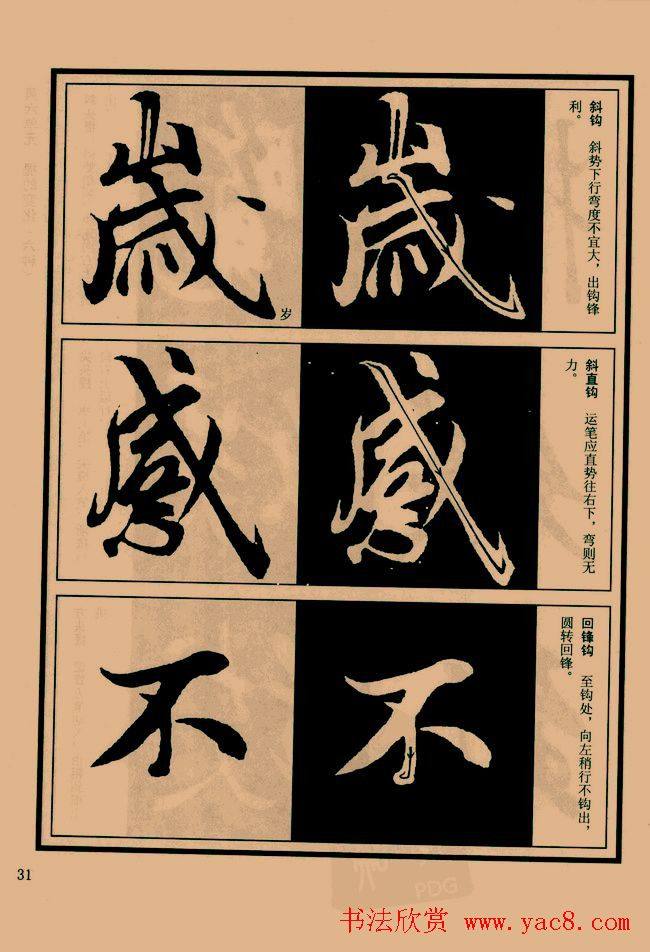 歲
岁
歲
斜钩 斜势下行弯度不宜大，出钩锋
利。
感
感
斜直钩 运笔应直势往右下，弯则无
力。
不
不
回锋钩 至钩处，向左稍行不钩出，
圆转回锋。
31
PDG
书法欣赏 www.yac8.com